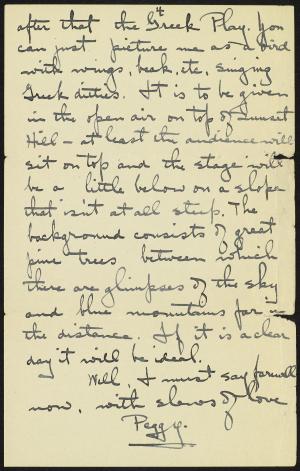 4
after that the Greek Play. You
can just picture me as a bird
with wings, beak, etc, singing
Greek ditties. It is to be given
in the open air on top of Sunset
Hill - at least the audience will
sit on top and the stage will
be a little below on a slope
that isn't at all steep. The
background consists of great
pine trees between which
there are glimpses of the sky
and blue mountains far in
the distance. If it is a clear
day it will be ideal.
Well, I must say farewell
now, with slews of love
Peggy.